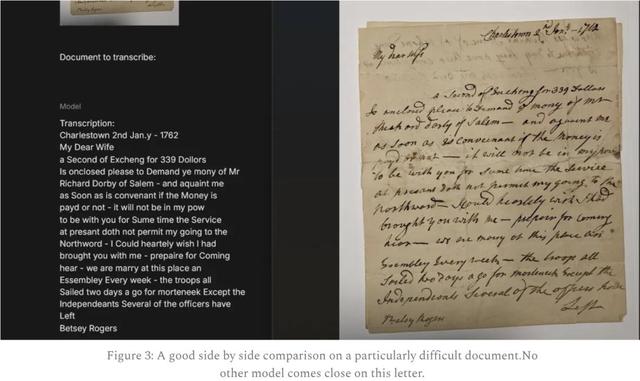 Document to transcribe:
Model
Transcription:
Charlestown 2nd Jan.y - 1762
My Dear Wife
a Second of Excheng for 339 Dorlors
Is enclosed please to Demand ye mony of Mr
Richard Dorby of Salem - and aquaint me
as Soon as is convenant if the Money is
payd or not - it will not be in my pow
to be with you for Sume time the Service
at presant doth not permit my going to the
Northword - I Could heartely wish I had
brought you with me - prepaire for Coming
hear - we are marry at this place an
Essembley Every week - the troops all
Sailed two days a go for morteneek Except the
Independeants Several of the officers have
Left
Betsey Rogers
Charlestown 2d Jany - 1762
My Dear Wife
a Second of Excheng for 339 Dollors
Is enclosed please to Demand ye mony of Mr
Dorby of Salem — and aquaint me
as soon as Is Convenant if the Money is
payd or not — it will not be in my pow
to be with you for sume time the Service
at presant doth not permit my going to the
Northword — I Could heartely wish I had
brought you with me — prepair for Coming
hear — we are at this place
Essembley Every week — the troops all
Sailed two days a go for morteneek Except the
Independants Several of the officers have
Left
Betsey Rogers
Figure 3: A good side by side comparison on a particularly difficult document.No
other model comes close on this letter.